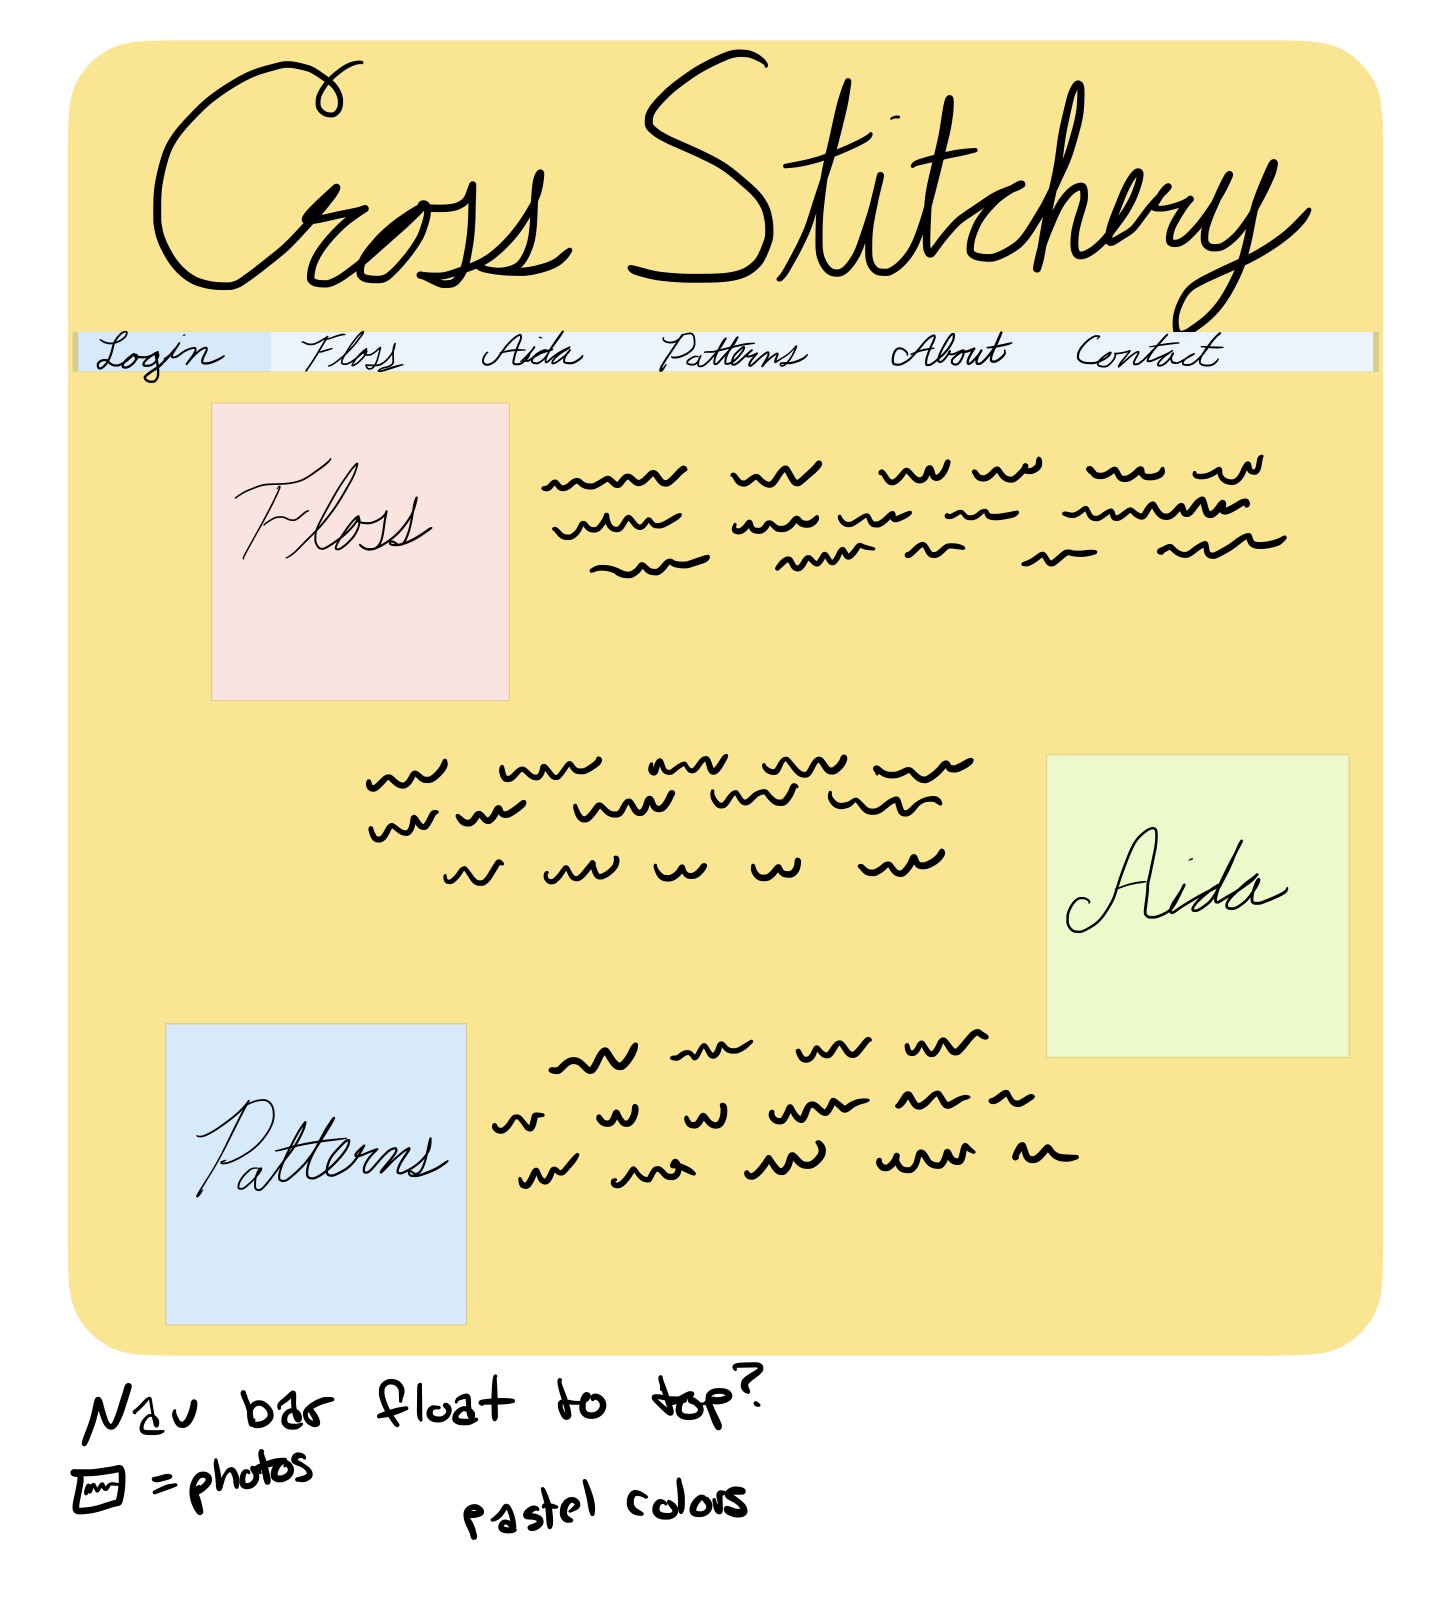 Cross Stitchery
Login Floss Aida Patterns About Contact
Floss
Aida
Patterns
Nav bar float to top?
= photos
pastel colors